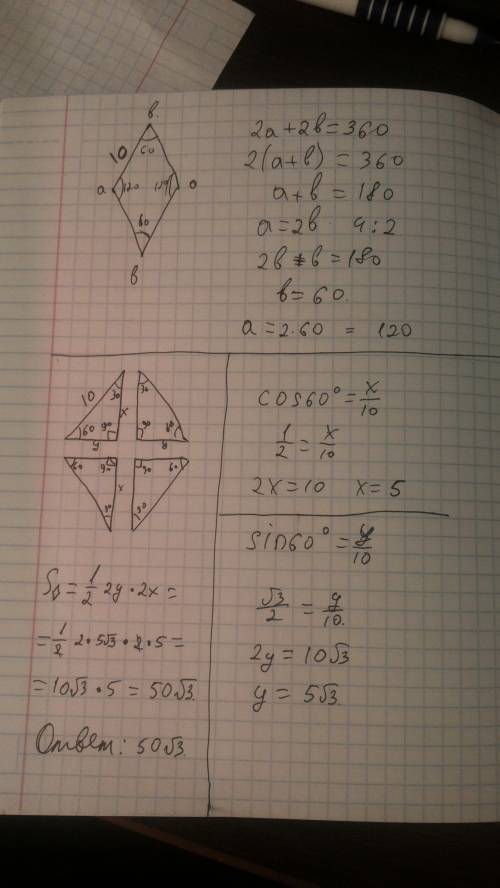 в.
10
60
a 120 120 a
60
в
2a+2в=360
2(a+в) = 360
a+в = 180
a=2в 4:2
2в+в=180
в=60.
a=2·60 = 120
10 30 x 60 90 y
30 90 60 y
60 90 x 30
90 60 30
cos60°=x/10
1/2=x/10
2x=10 x=5
sin60°=y/10
√3/2=y/10.
2y=10√3
y=5√3.
S◊=1/2 2y·2x=
=1/2 2·5√3·2·5=
=10√3·5=50√3.
Ответ: 50√3.